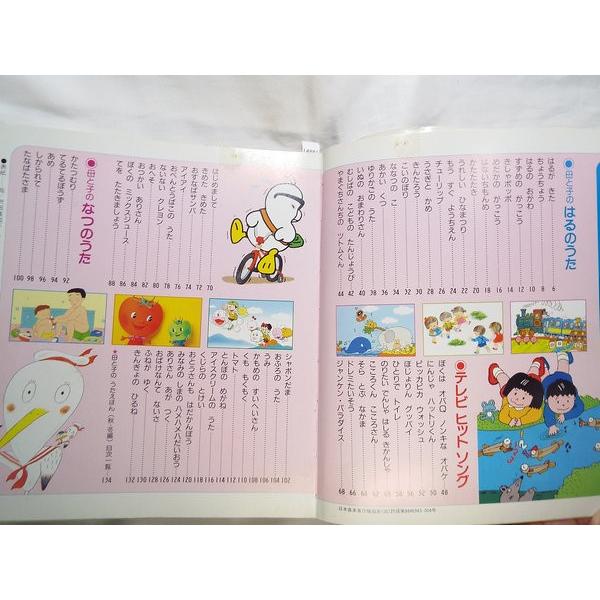 ●母と子の はるのうた
はるが きた 6
ちょうちょう 8
はるの おがわ 10
すずめの がっこう 12
きしゃポッポ 14
めだかの がっこう 16
はないちもんめ 18
かたたたき 20
うれしい ひなまつり 22
もう すぐ ようちえん 24
チューリップ 26
うさぎと かめ 28
きんたろう 30
こいのぼり 32
ななつの こ 34
あかい くつ 36
ゆりかごの うた 38
いぬの おまわりさん 40
むしばの こどもの たんじょうび 42
やまぐちさんちの ツトムくん 44
●テレビ ヒット ソング
ぼくは オバQ ノンキな オバケ
にんじゃ ハットリくん
グッバイ
ひとりで トイレ
のりたい でんしゃ はしる きかんしゃ
こころくん こころさん
そらとぶ なかま
ドレミたいそう
ジャンケン・パラダイス 68
はじめまして 70
きめた きめた 72
おすなばサンバ 74
アイアイ 76
おべんとばこの うた 78
ないない クレヨン 80
おへそ 82
おつかい ありさん 84
ぼくの ミックスジュース 86
てを たたきましょう 88
●母と子の なつのうた
かたつむり 92
てるてるぼうず 94
あめ 96
しかられて 98
たなばたさま 100
シャボンだま 102
おふろの うた 104
うみ 106
かもめの すいへいさん 108
くも もくもく 110
トマト 112
とんぼの めがね 114
アイスクリームの うた 116
くじらの とけい 118
おとうさんも はだかんぼう 120
みなみの しまの ハメハメハだいおう
ありさん
おばけなんて ないさ
ふねが ゆく
きんぎょの ひるね 132
●母と子の うたえほん〈秋・冬編〉目次一覧 134